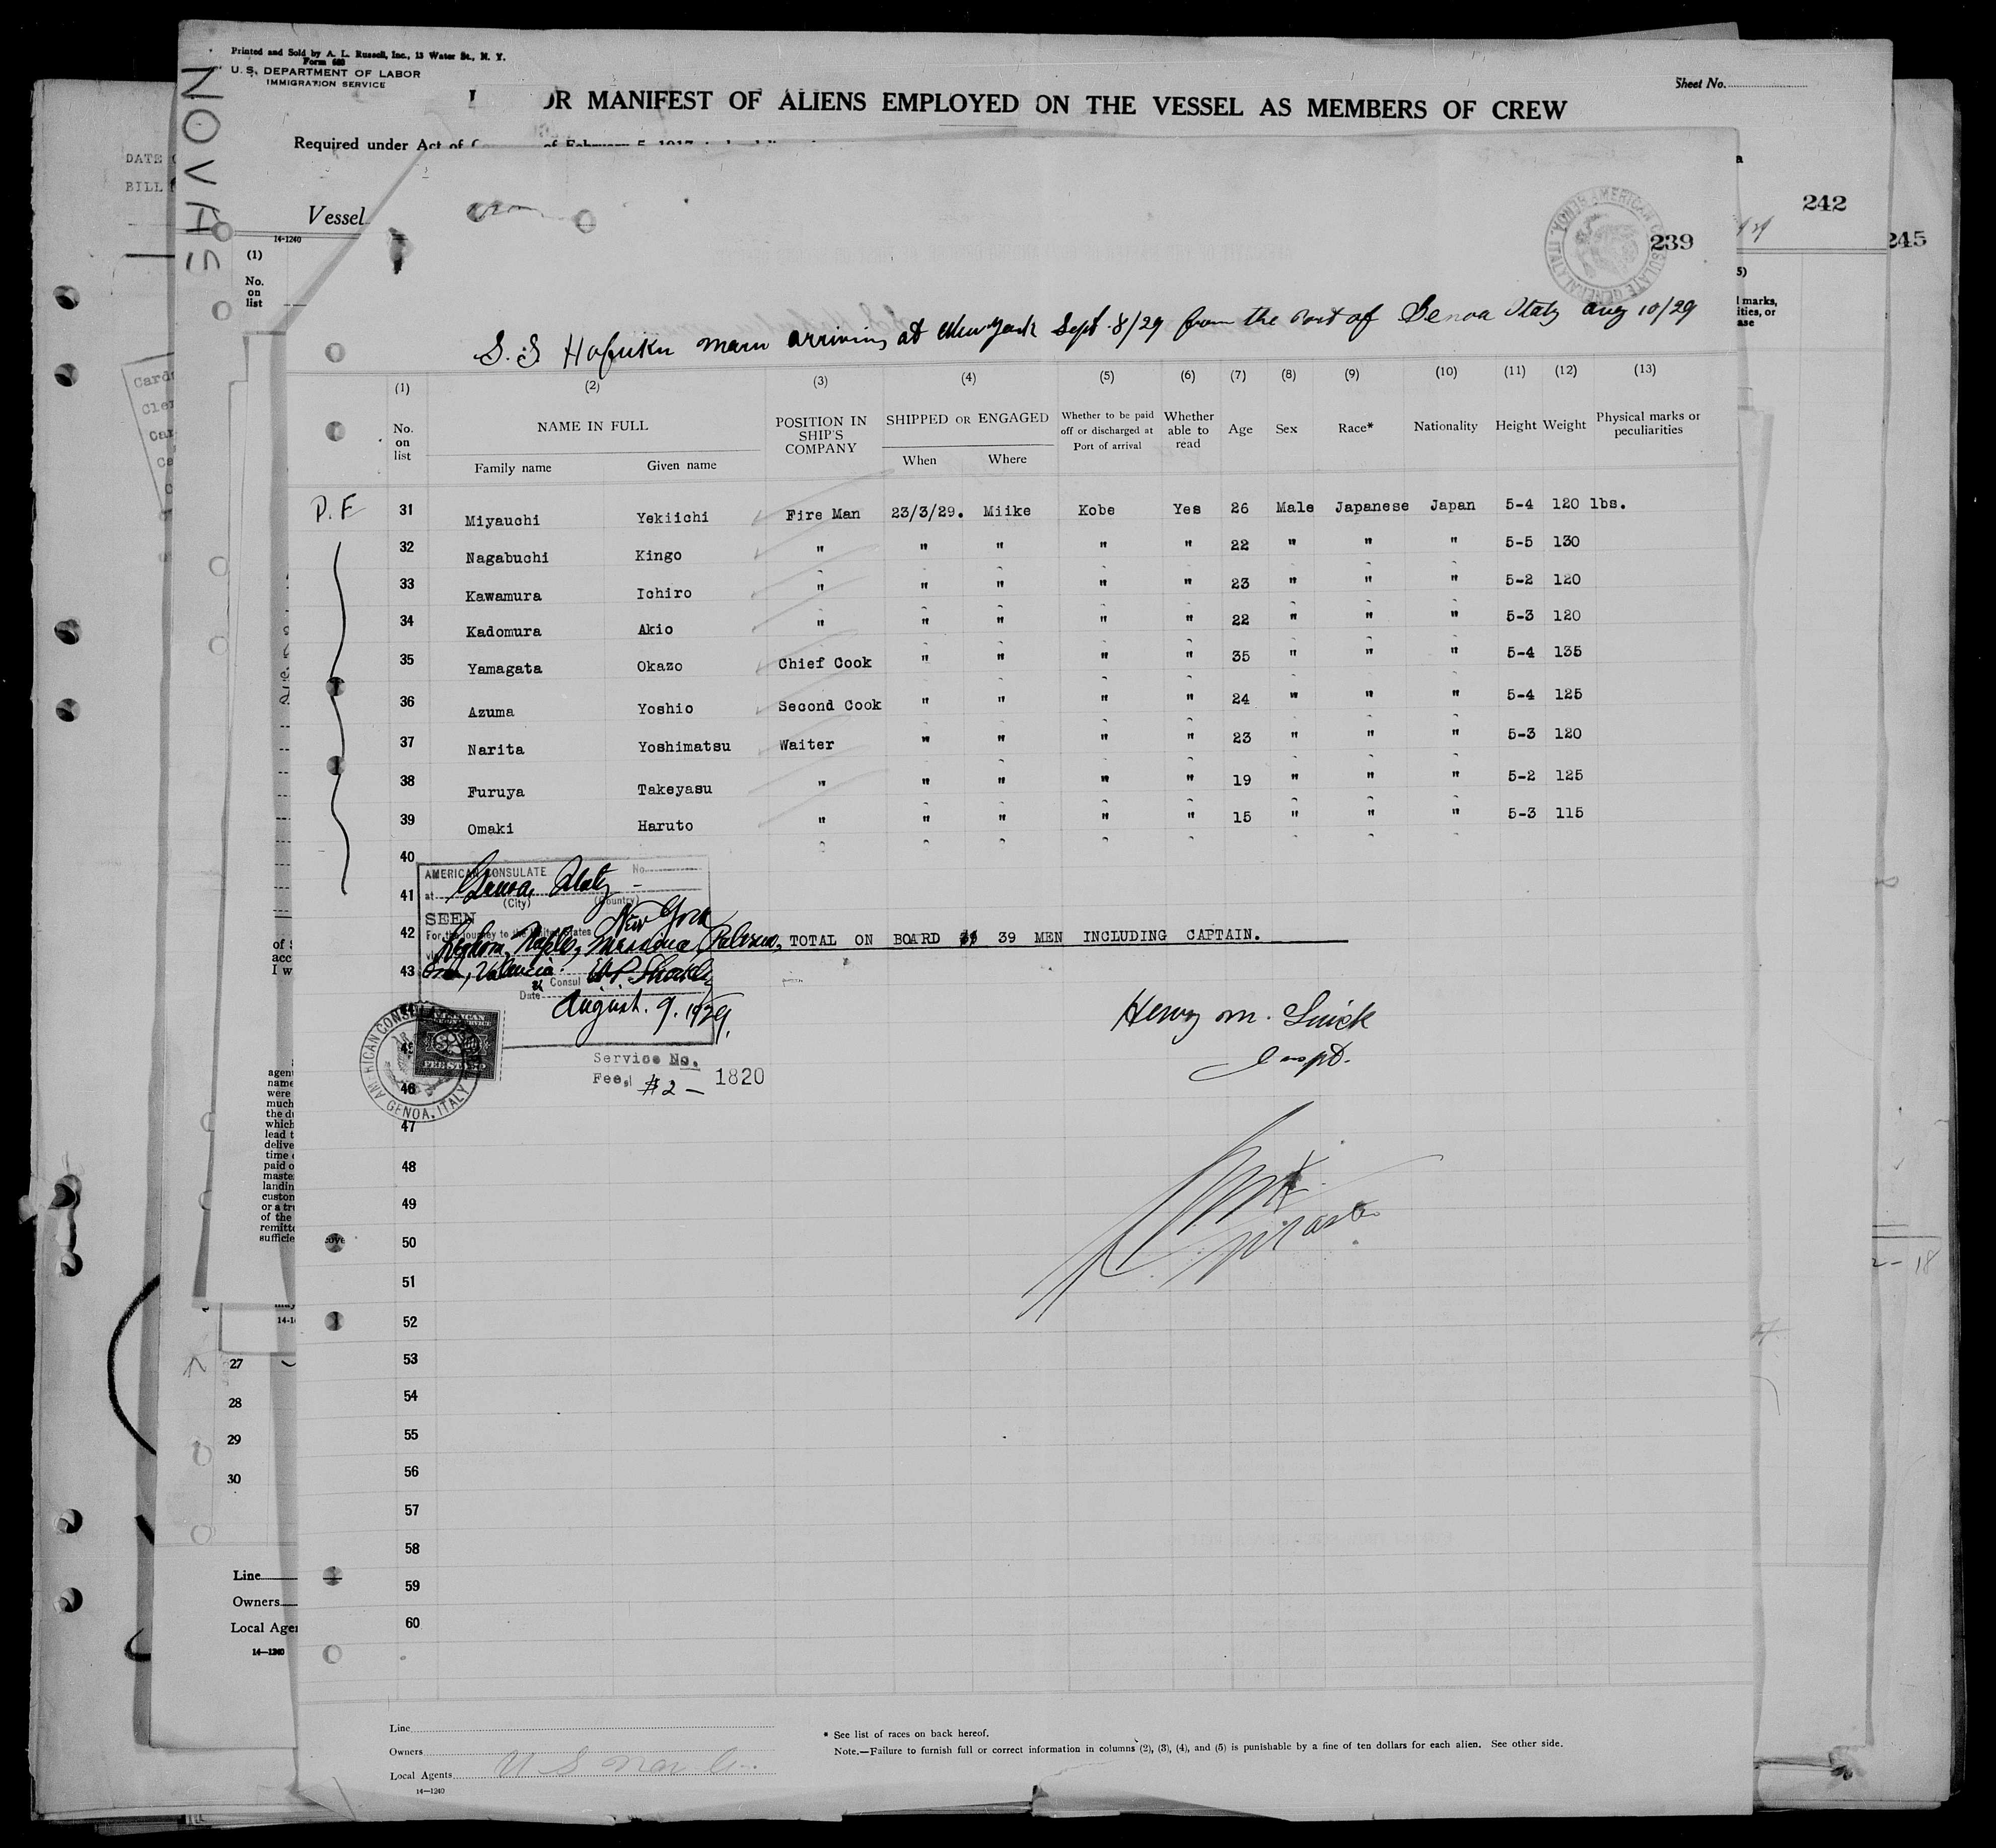 Printed and Sold by A. L. Russell, Inc., 13 Water St., N. Y.
Form 680
U. S. DEPARTMENT OF LABOR
IMMIGRATION SERVICE
Sheet No.
OR MANIFEST OF ALIENS EMPLOYED ON THE VESSEL AS MEMBERS OF CREW
Required under Act of
of February 5, 1917
NOVAHS
DATE
BILL
Vessel
14-1240
242
239
245
AMERICAN CONSULATE GENERAL GENOA, ITALY
(1)
No.
on
list
S.S. Hofuku maru arriving at New York Sept. 8/29 from the Port of Genoa Italy aug 10/29
(1) (2) (3) (4) (5) (6) (7) (8) (9) (10) (11) (12) (13)
No. on list NAME IN FULL POSITION IN SHIP'S COMPANY SHIPPED OR ENGAGED Whether to be paid off or discharged at Port of arrival Whether able to read Age Sex Race* Nationality Height Weight Physical marks or peculiarities
Family name Given name When Where
P. F.
31 Miyauchi Yekiichi Fire Man 23/3/29. Miike Kobe Yes 26 Male Japanese Japan 5-4 120 lbs.
32 Nagabuchi Kingo " " " " " 22 " " " 5-5 130
33 Kawamura Ichiro " " " " " 23 " " " 5-2 120
34 Kadomura Akio " " " " " 22 " " " 5-3 120
35 Yamagata Okazo Chief Cook " " " " 35 " " " 5-4 135
36 Azuma Yoshio Second Cook " " " " 24 " " " 5-4 125
37 Narita Yoshimatsu Waiter " " " " 23 " " " 5-3 120
38 Furuya Takeyasu " " " " " 19 " " " 5-2 125
39 Omaki Haruto " " " " " 15 " " " 5-3 115
40
AMERICAN CONSULATE No.
41 at Genoa, Italy
(City) (Country)
SEEN New York
For the journey to the United States
42 Leghorn, Naples, Messina, Palermo, TOTAL ON BOARD 39 MEN INCLUDING CAPTAIN.
43 Valencia.
Consul
Date August. 9. 1929.
Henry M.
Inspt.
AMERICAN CONSULATE GENERAL GENOA, ITALY
Service No. 1820
Fee, $2—
46
47
48
49
50
51
52
53
54
55
56
57
58
59
60
27
28
29
30
Line
Owners
Local Agen
14—1240
Line
Owners
Local Agents
14—1240
* See list of races on back hereof.
Note.—Failure to furnish full or correct information in columns (2), (3), (4), and (5) is punishable by a fine of ten dollars for each alien. See other side.